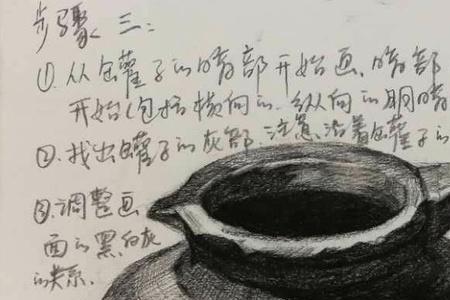 步骤三:
①.从缶罐子的暗部开始画.暗部
开始(包括横向的.纵向的明暗
②.找出罐子的灰部.注意.沿着缶罐子的
③.调整画
面的黑白灰
的关系.